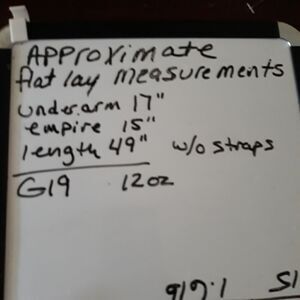 Approximate
flat lay measurements
underarm 17"
empire 15"
length 49" w/o straps
G19 12oz